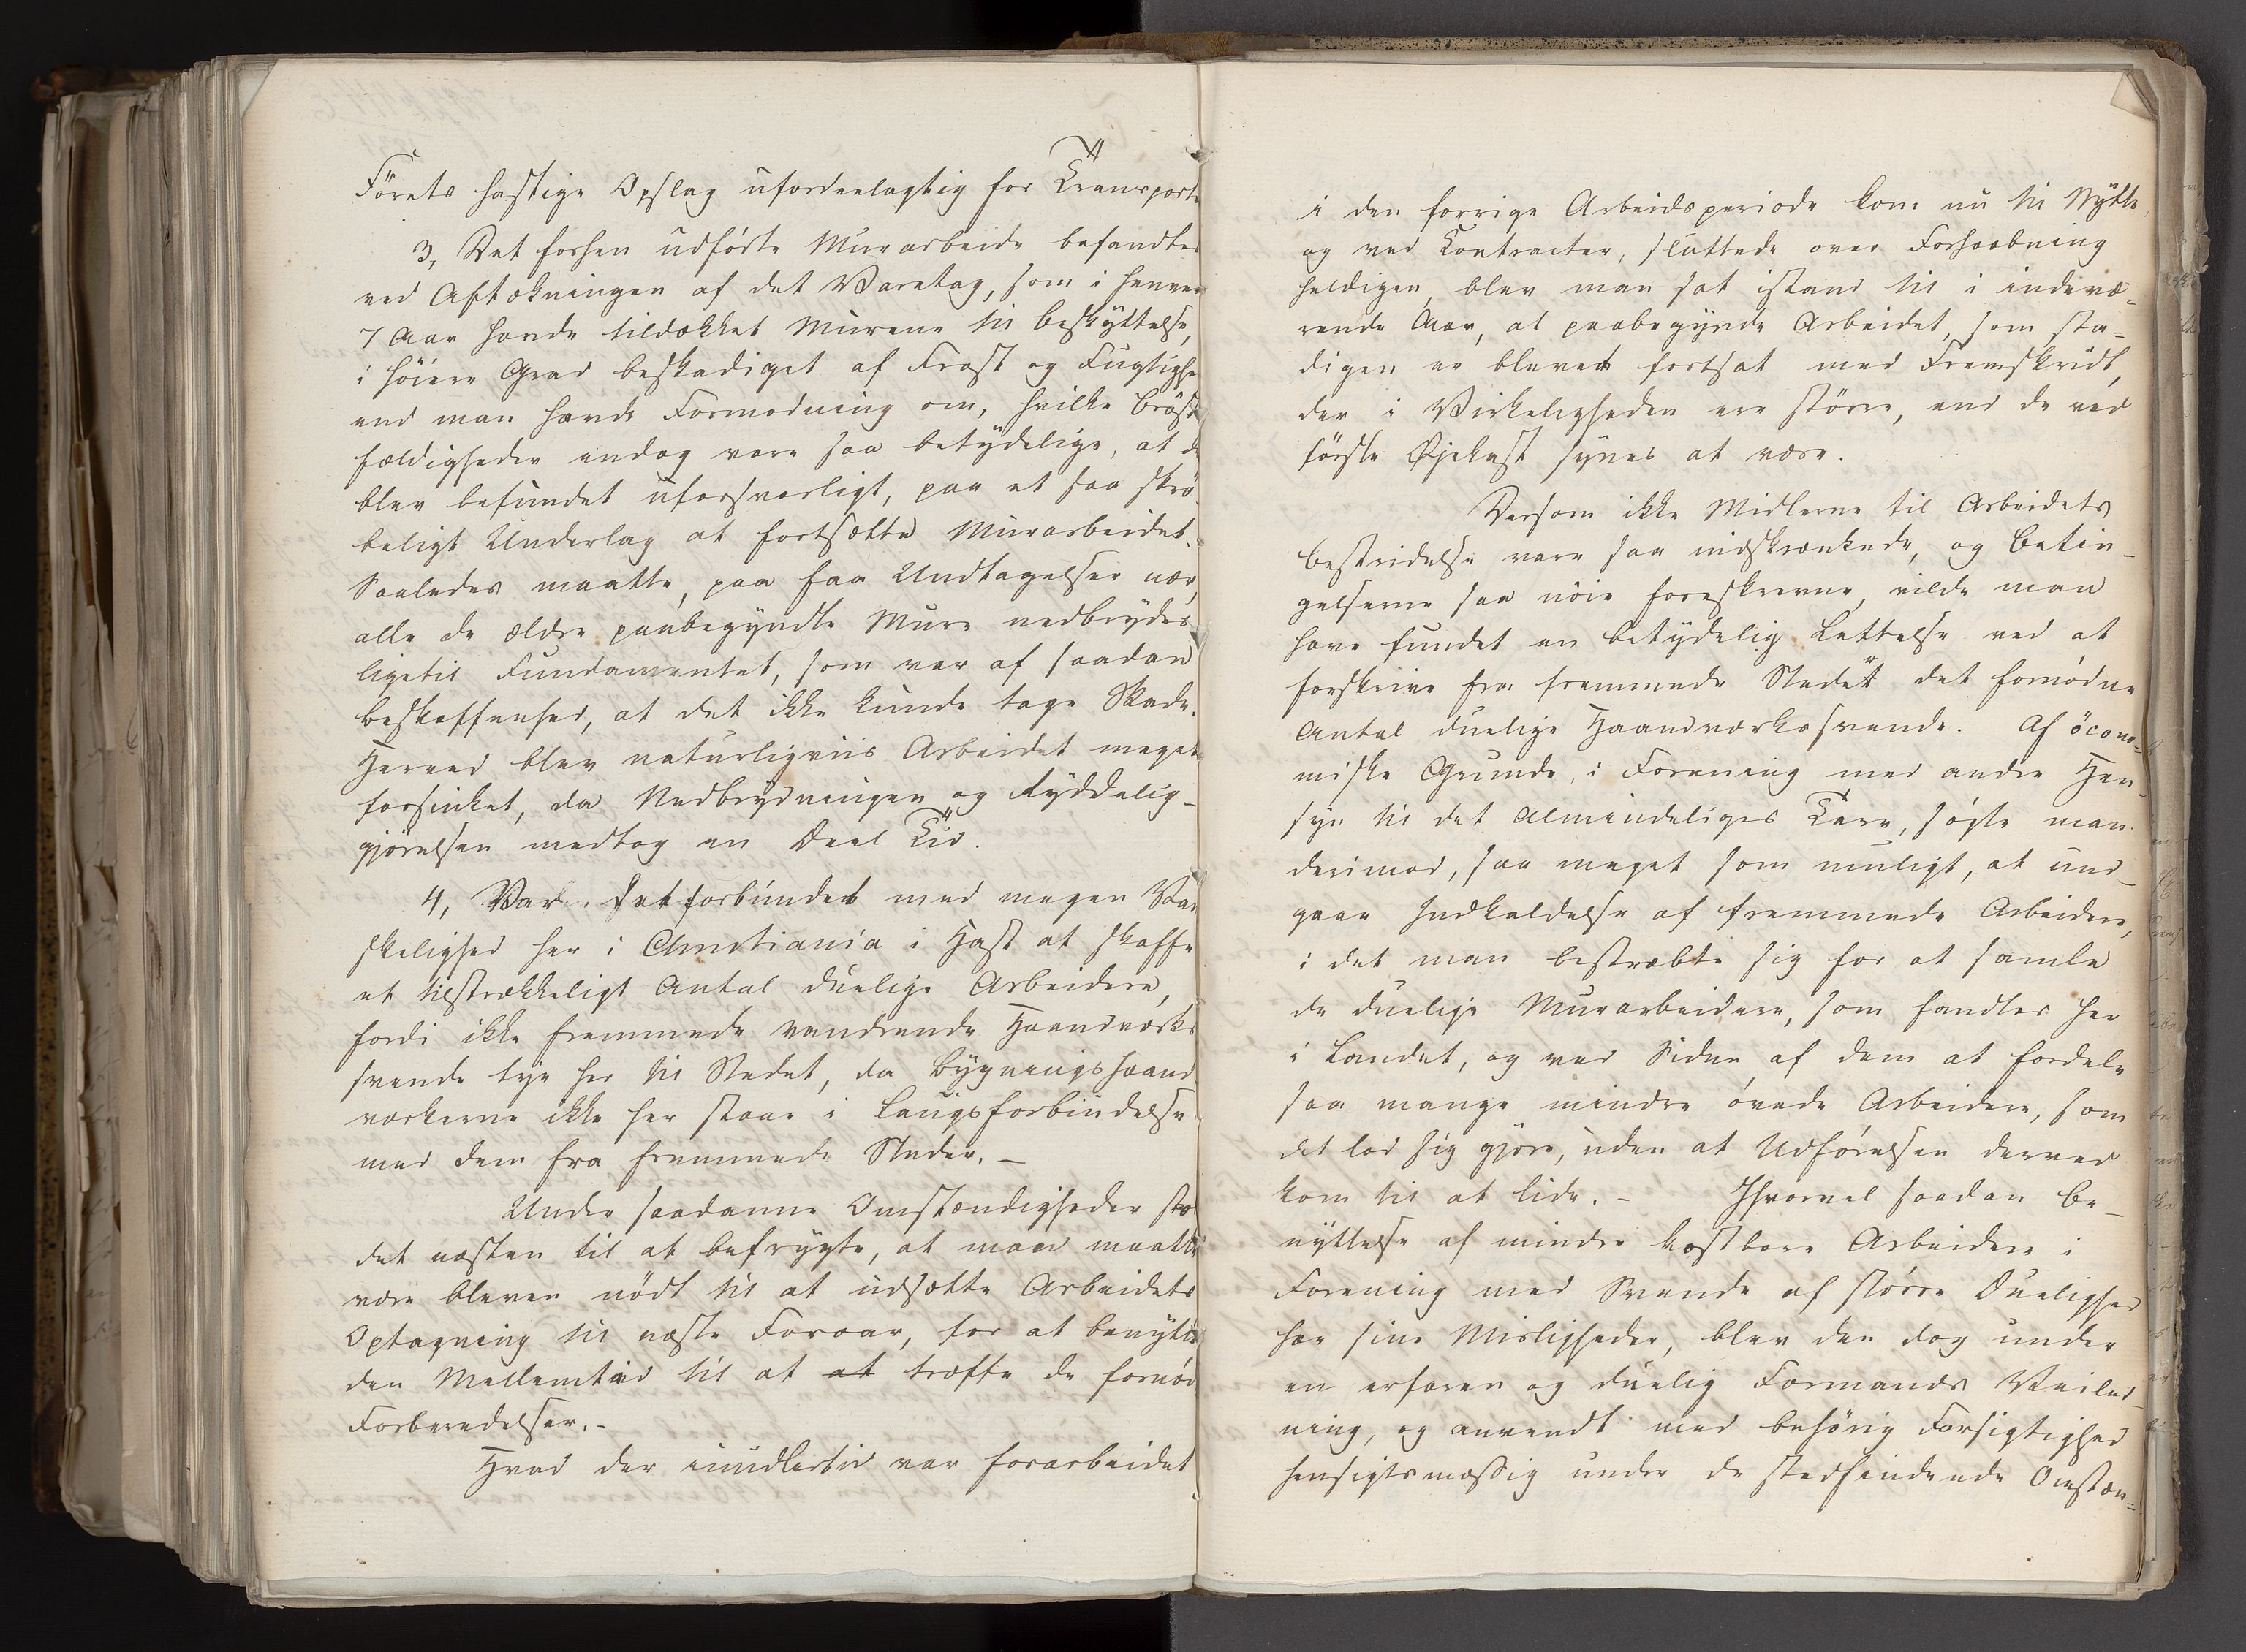 Förets hastige Opslag ufordeelagtig for Transporte
3, Det forhen udførte Murarbeide befandtes
ved Aftækningen af det Varetag, som i henved
7 Aar havde tildækket Murene til Beskyttelse,
i høiere Grad beskadiget af Frost og Fugtighe
end man havde Formodning om, hvilke Bröst
fældigheder endog vare saa betydelige, at d
blev befundet uforsvarligt, paa et saa skrö
beligt Underlag at fortsætte Murarbeidet.
Saaledes maatte, paa faa Undtagelser nær,
alle de ældre paabegyndte Mure nedbrydes
ligetil Fundamentet, som var af saadan
Beskaffenhed, at det ikke kunde tage Skade.
Herved blev naturligviis Arbeidet meget
forsinket, da Nedbrydningen og Ryddelig-
gjörelsen medtog en Deel Tid.
4, Var det forbundet med megen Van
skelighed her i Christiania i Hast at skaffe
et tilstrækkeligt Antal duelige Arbeidere,
fordi ikke fremmede vandrende Haandværks
svende tye her til Stedet, da Bygningshaand
værkerne ikke her staae i Laugsforbindelse
med dem fra fremmede Steder. -
Under saadanne Omstændigheder sto
det næsten til at befrygte, at man maatte
være bleven nödt til at udsætte Arbeidets
Optagning til næste Foraar, for at benytte
den Mellemtid til at at træffe de fornød
Forberedelser. -
Hvad der imidlertid var forarbeidet
i den forrige Arbeidsperiode kom nu til Nytte,
og ved Contracter, sluttede over Forhaabning
heldigen, blev man sat istand til i indevæ=
rende Aar, at paabegynde Arbeidet, som sta=
digen er blevet fortsat med Fremskridt,
der i Virkeligheden ere större, end de ved
förste Øjekast synes at være.
Dersom ikke Midlerne til Arbeidets
Bestridelse vare saa indskrænkede, og Betin-
gelserne saa nöie foreskrevne, vilde man
have fundet en betydelig Lettelse ved at
forskrive fra fremmede Steder det fornödne
Antal duelige Haandværkssvende. Af öcono=
miske Grunde, i Forening med andre Hen-
syn til det Almindeliges Tarv, søgte man
derimod, saa meget som muligt, at und-
gaae Indkaldelse af fremmede Arbeidere,
i det man bestræbte sig for at samle
de duelige Murarbeidere, som fandtes her
i Landet, og ved Siden af dem at fordele
saa mange mindre øvede Arbeidere, som
det lod sig gjöre, uden at Udførelsen derved
kom til at lide. - Ihvorvel saadan Be-
nyttelse af mindre kostbare Arbeidere i
Forening med Svende af större Duelighed
har sine Misligheder, blev den dog under
en erfaren og duelig Formands Veiled-
ning, og anvendt med behörig Forsigtighed
hensigtsmæssig under de stedfindende Omstæn=